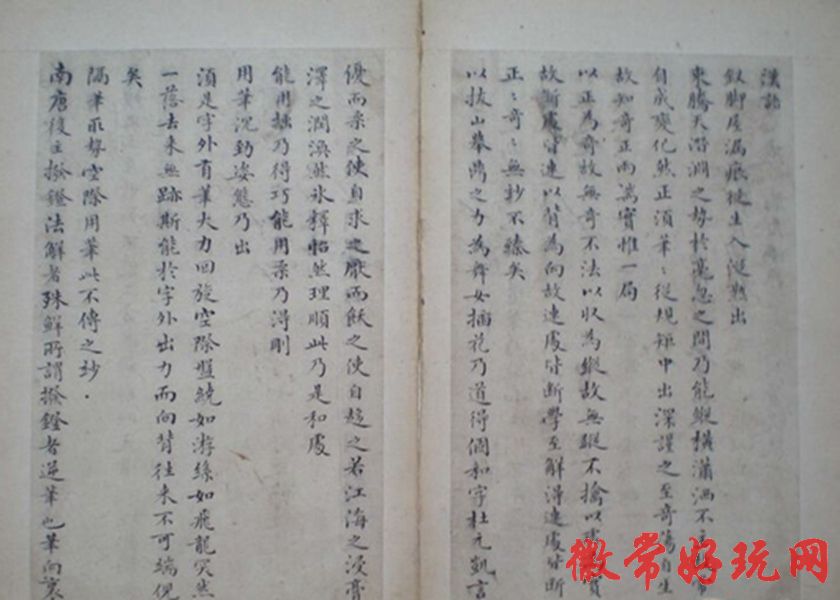 漢
釵脚屋漏痕從生入從熟出
束騰天潛淵之勢於毫忽之間乃能縱橫瀟洒不主 常
自成變化然正須筆〻從規矩中出深謹之至奇蕩自生
故知奇正兩端實惟一局
以正為奇故無奇不法以收為縱故無縱不擒以虛 實
故斷處皆連以背為向故連處皆斷學至解得連處皆斷
正〻奇〻無妙不臻矣
以拔山舉鼎之力為舞女插花乃道得個和字杜元凱言
優而柔之使自求之厭而飫之使自趨之若江海之浸膏
澤之潤渙然氷釋怡然理順此乃是和處
能用拙乃得巧能用柔乃得剛
用筆沉勁姿態乃出
須是字外有筆大力回旋空際盤繞如游絲如飛龍突然
一落去來無跡斯能於字外出力而向背往來不可端倪
矣
隔筆取勢空際用筆此不傳之妙
南唐後主撥鐙法解者殊鮮所謂撥鐙者逆筆也筆向裏
徽常好玩网